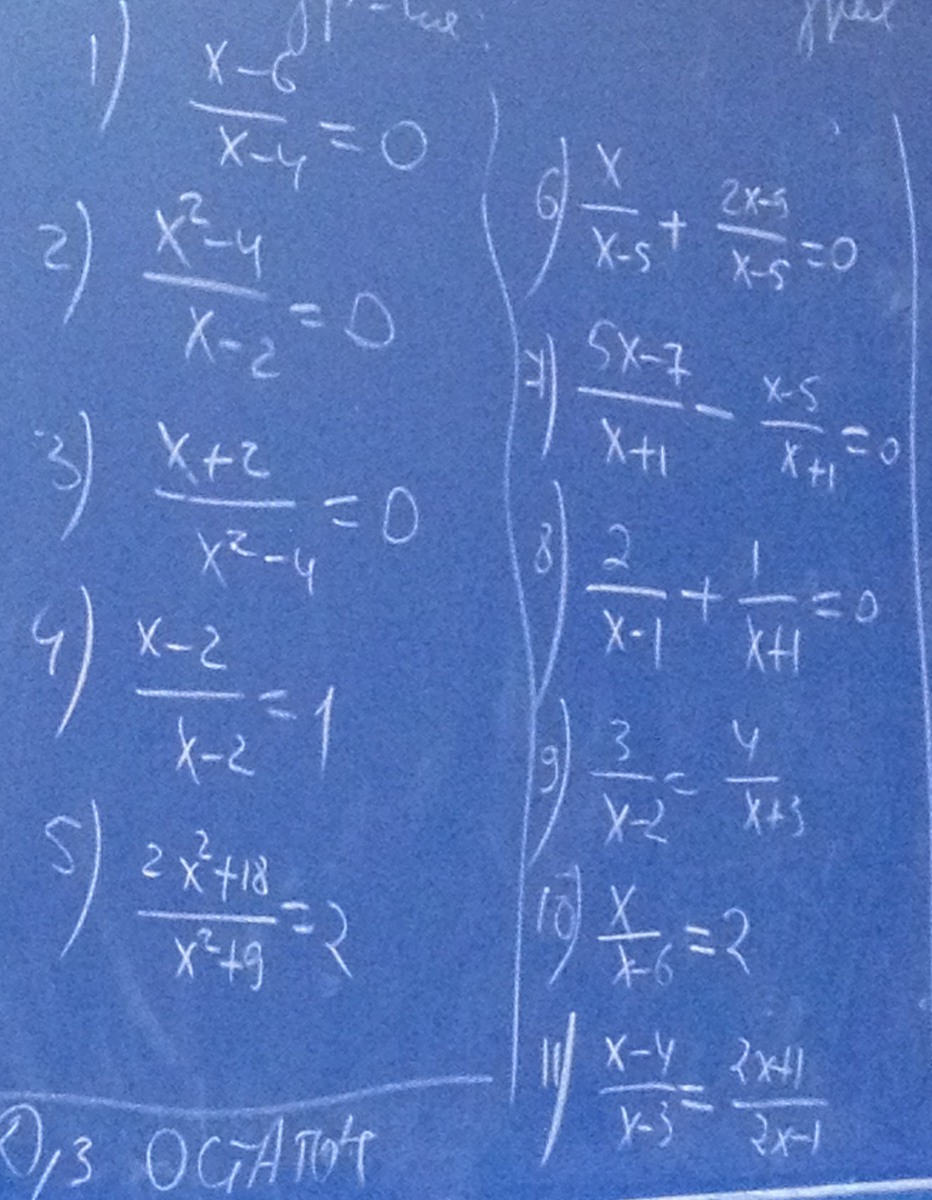 1) (x-6)/(x-4) = 0
2) (x²-4)/(x-2) = 0
3) (x+2)/(x²-4) = 0
4) (x-2)/(x-2) = 1
5) (2x²+18)/(x²+9) = 2
6) x/(x-5) + (2x-5)/(x-5) = 0
7) (5x-7)/(x+1) - (x-5)/(x+1) = 0
8) 2/(x-1) + 1/(x+1) = 0
9) 3/(x-2) = 4/(x+3)
10) x/(x-6) = 2
11) (x-4)/(x-3) = (2x+1)/(2x-1)